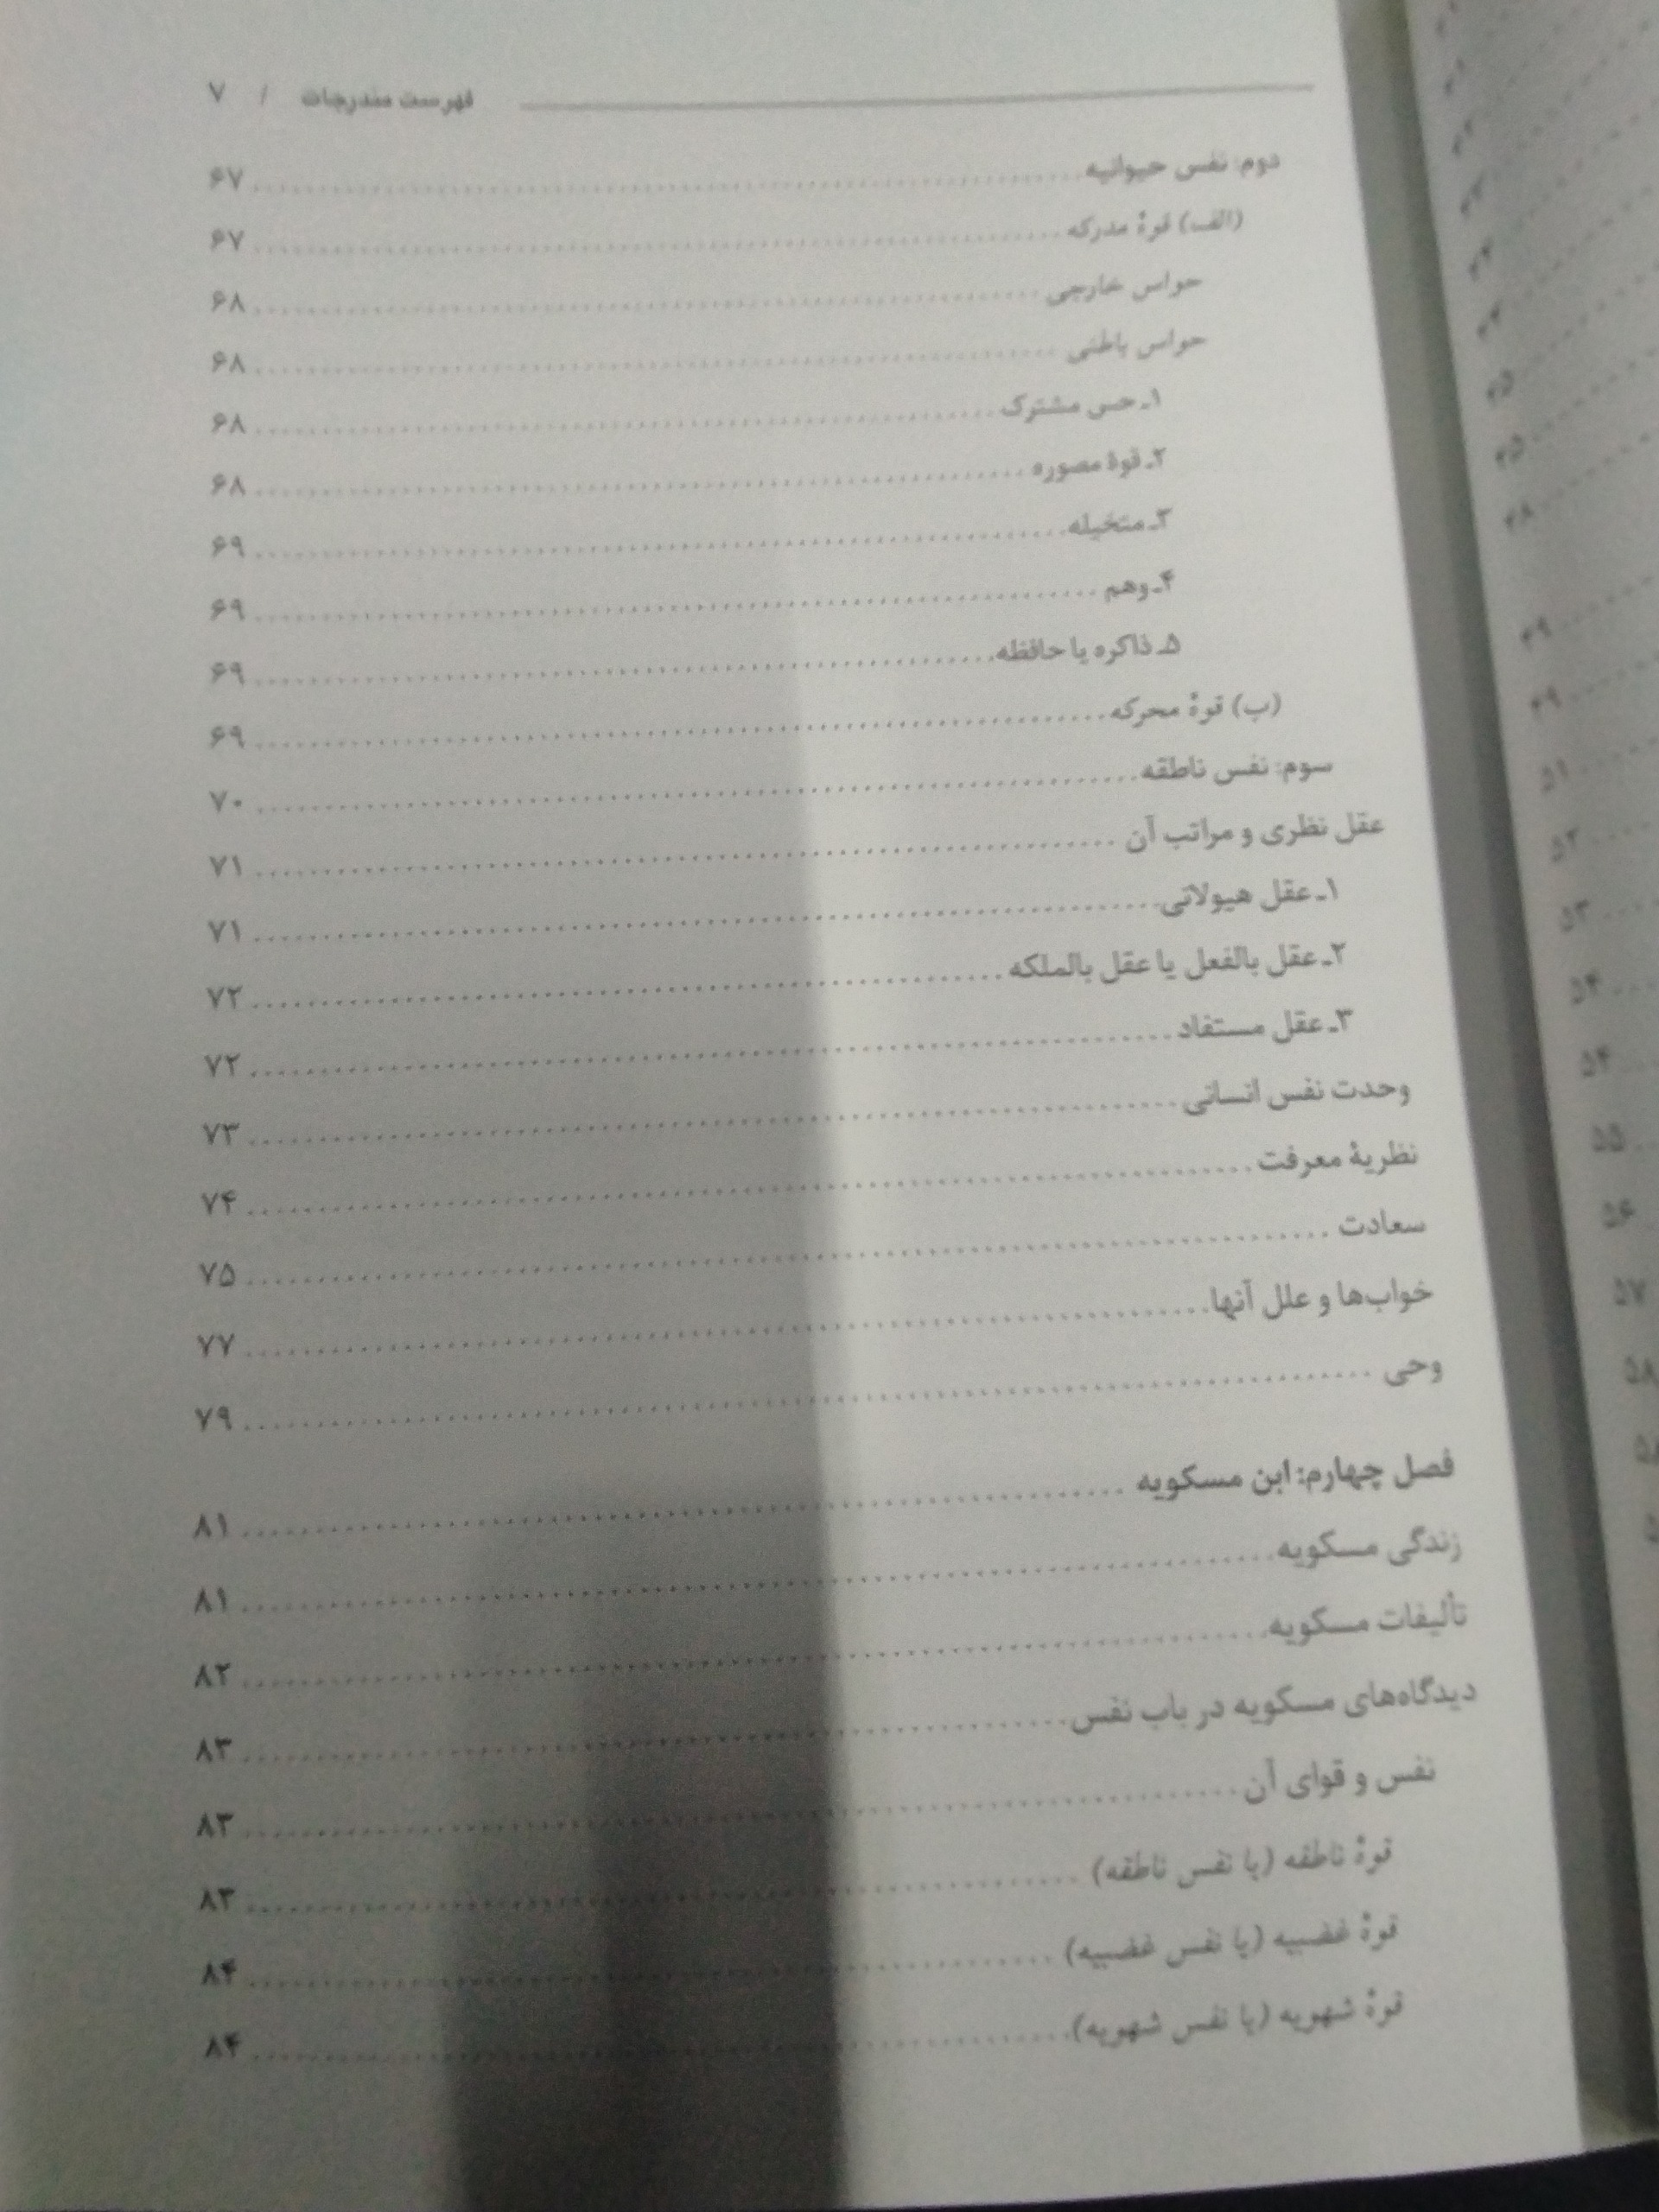 فهرست مندرجات / ۷
دوم: نفس حیوانیه ۶۷
(الف) قوهٔ مدرکه ۶۷
حواس خارجی ۶۸
حواس باطنی ۶۸
۱ـ حس مشترک ۶۸
۲ـ قوهٔ مصوره ۶۸
۳ـ متخیله ۶۹
۴ـ وهم ۶۹
۵ـ ذاکره یا حافظه ۶۹
(پ) قوهٔ محرکه ۶۹
سوم: نفس ناطقه ۷۰
عقل نظری و مراتب آن ۷۱
۱ـ عقل هیولاتی ۷۱
۲ـ عقل بالفعل یا عقل بالملکه ۷۲
۳ـ عقل مستفاد ۷۲
وحدت نفس انسانی ۷۳
نظریهٔ معرفت ۷۴
سعادت ۷۵
خواب‌ها و علل آنها ۷۷
وحی ۷۹
فصل چهارم: ابن مسکویه ۸۱
زندگی مسکویه ۸۱
تألیفات مسکویه ۸۲
دیدگاه‌های مسکویه در باب نفس ۸۳
نفس و قوای آن ۸۳
قوهٔ ناطقه (یا نفس ناطقه) ۸۳
قوهٔ غضبیه (یا نفس غضبیه) ۸۴
قوهٔ شهویه (یا نفس شهویه) ۸۴